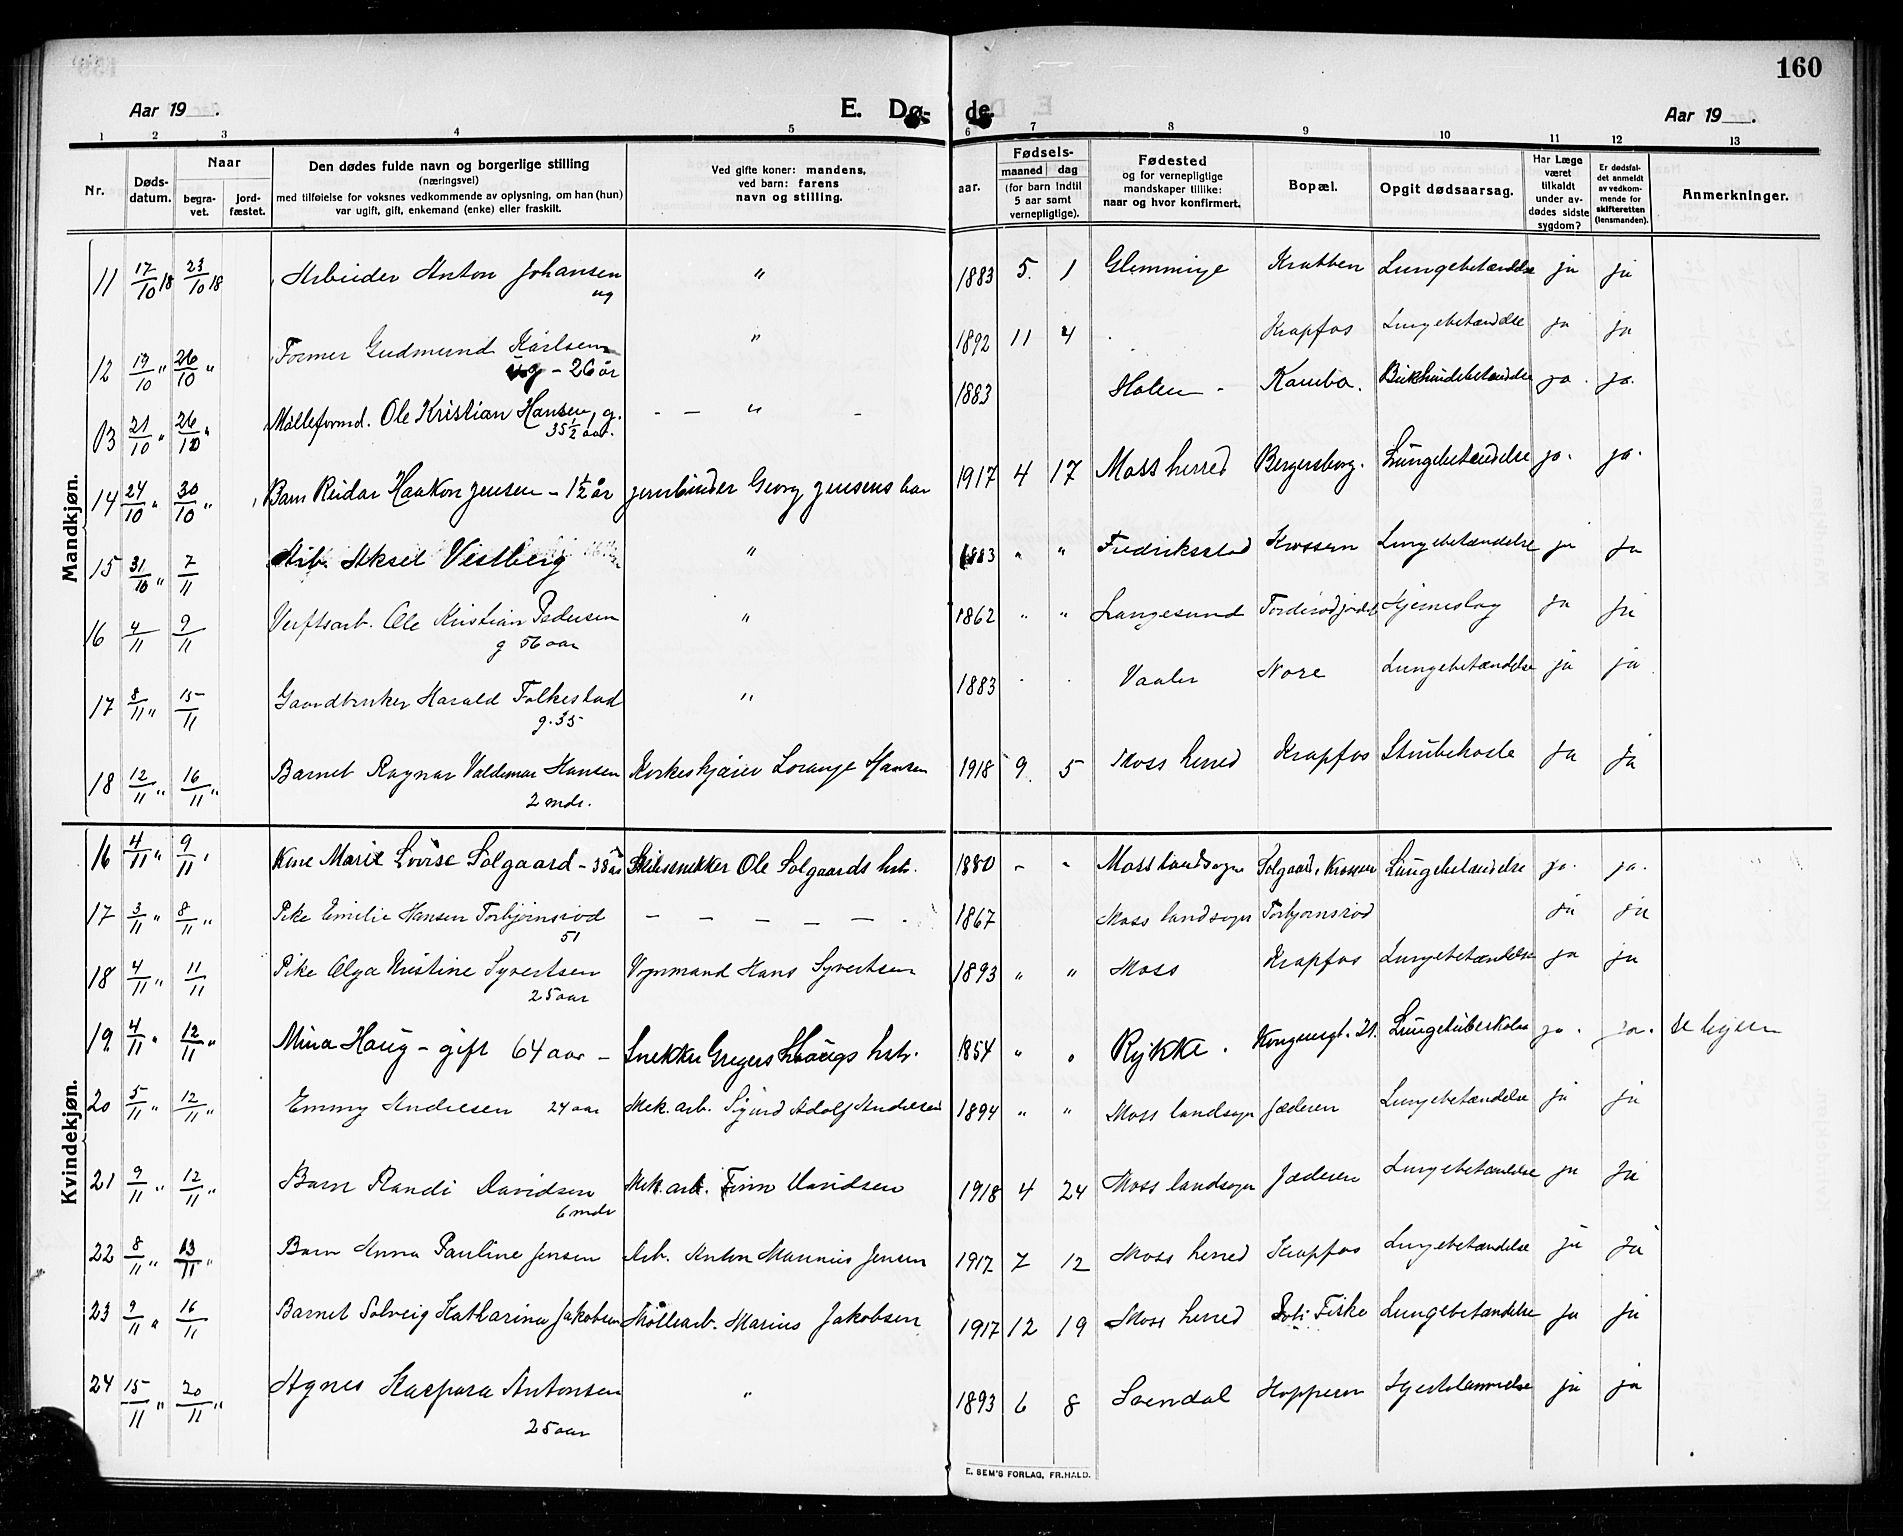 160
Aar 19 . E. Dø- de. Aar 19 .
1 2 3 4 5 6 7 8 9 10 11 12 13
Nr. Døds-datum. Naar begra-vet. jord-fæstet. Den dødes fulde navn og borgerlige stilling (næringsvei) med tilføielse for voksnes vedkommende av oplysning, om han (hun) var ugift, gift, enkemand (enke) eller fraskilt. Ved gifte koner: mandens, ved barn: farens navn og stilling. aar. Fødsels- maaned dag (for barn indtil 5 aar samt vernepligtige). Fødested og for vernepligtige mandskaper tillike: naar og hvor konfirmert. Bopæl. Opgit dødsaarsag. Har Læge været tilkaldt under av-dødes sidste sygdom? Er dødsfal-det anmeldt av vedkom-mende for skifteretten (lensmanden). Anmerkninger.
Mandkjøn.
11 17/10 18 23/10 18 Arbeider Anton Johansen ug " 1883 5. 1 Glemminge Krabben Lungebetændelse ja ja
12 19/10 " 26/10 " Former Gudmund Karlsen ug - 26 år " 1892 11 4 . Krapfos Lungebetændelse ja ja
13 21/10 " 26/10 " Mølleformd. Ole Kristian Hansen, g. 35 1/2 aar. - - " - 1883 Holen - Kambo. Bukhindebetændelse ja. ja.
14 24/10 " 30/10 " Barn Reidar Haakon Jensen - 1 1/2 år jernbinder Georg Jensens bar 1917 4 17 Moss herred Bergersborg. Lungebetændelse ja. ja.
15 31/10 " 7/11 Arb. Aksel Vestberg " 1883 " " Fredriksstad Krossern Lungebetændelse ja ja
16 4/11 9/11 Verftsarb. Ole Kristian Pedersen g 56 aar " 1862 " " Langesund Tordisrødjordet Hjerneslag ja ja
17 8/11 " 15/11 Gaardbruker Harald Folkestad g. 35 " 1883 . . Vaaler Nore Lungebetændelse ja ja
18 12/11 " 16/11 " Barnet Ragnar Valdemar Hansen 2 mdr. Korkeskjærer Lorange Hansen 1918 9. 5 Moss herred Krapfos Strubehoste ja ja
Kvindekjøn.
16 4/11 " 9/11 " Kone Marie Lovise Solgaard - 38 år Skibssnekker Ole Solgaards hstr. 1880 - " Moss landsogn Solgaard, Krossern Lungebetændelse ja. ja.
17 3/11 " 8/11 " Pike Emilie Hansen Torbjørnsrød 51 - - - - - . 1867 Moss landsogn Torbjørnsrød ja ja
18 4/11 " 11/11 Pike Olga Kristine Syvertsen 25 aar Vognmand Hans Syvertsen 1893 " " Moss Krapfos Lungebetændelse ja ja
19 4/11 " 12/11 " Mina Haug - gift 64 aar - Snekker Gregers Haugs hstr. 1854 " " Rykke. Kongensgt. 21. Lungetuberkulose ja. ja.
20 5/11 " 12/11 " Emmy Andresen 24 aar Mek. arb. Sigurd Adolf Andresen 1894 " " Moss landsogn Jæderen Lungebetændelse ja ja
21 9/11 " 12/11 " Barn Randi Davidsen 6 mdr Mek. arb. Finn Davidsen 1918 4 24 Moss landsogn Jæderen Lungebetændelse ja ja
22 8/11 " 13/11 " Barn Anna Pauline Jensen Arb. Anton Marinius Jensen 1917 7 12 Moss herred Krapfos Lungebetændelse ja ja
23 9/11 " 16/11 Barnet Solveig Katharina Jakobsen Møllearb. Marius Jakobsen 1917 12 19 Moss herred Fiske Lungebetændelse ja ja
24 15/11 " 20/11 " Agnes Kaspara Antonsen 25 aar " 1893 6 8 Svendal Hoppern ja ja
E. SEM'S FORLAG, FR.HALD.